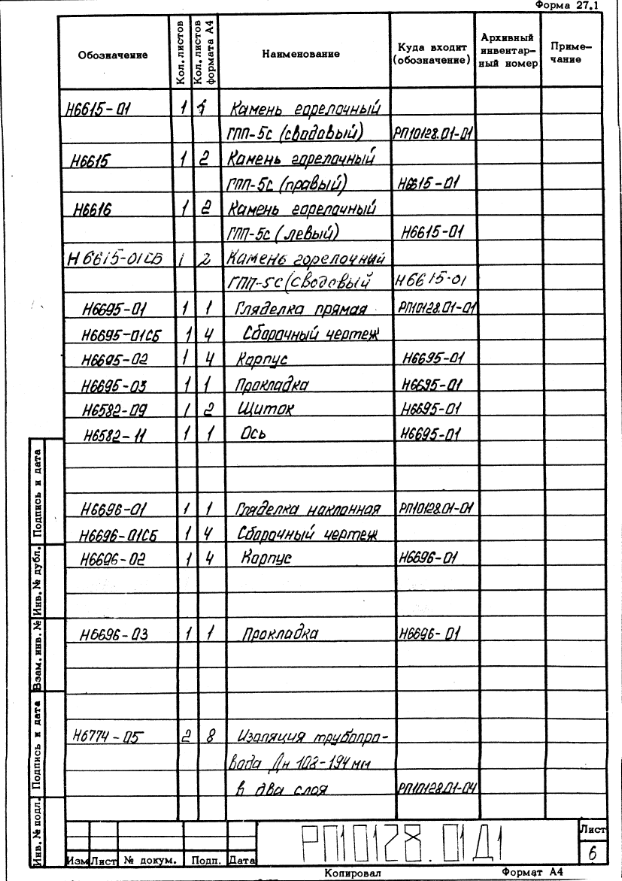 Форма 27.1
Обозначение Кол. листов Кол. листов формата А4 Наименование Куда входит (обозначение) Архивный инвентарный номер Приме-чание
Н6615-01 1 Камень горелочный
ГПП-5с (сводовый) РП10128.01-01
Н6615 1 2 Камень горелочный
ГПП-5с (правый) Н6615-01
Н6616 1 2 Камень горелочный
ГПП-5с (левый) Н6615-01
Н6615-01СБ 1 2 Камень горелочный
ГПП-5с (сводовый Н6615-01
Н6695-01 1 1 Гляделка прямая РП10128.01-01
Н6695-01СБ 1 4 Сборочный чертеж
Н6695-02 1 4 Корпус Н6695-01
Н6695-03 1 1 Прокладка Н6695-01
Н6582-09 1 2 Щиток Н6695-01
Н6582-11 1 1 Ось Н6695-01
Н6696-01 1 1 Гляделка наклонная РП10128.01-01
Н6696-01СБ 1 4 Сборочный чертеж
Н6696-02 1 4 Корпус Н6696-01
Н6696-03 1 1 Прокладка Н6696-01
Н6774-05 2 8 Изоляция трубопро-
вода Дн 108-194 мм
в два слоя РП10128.01-04
Инв. № подл. Подпись и дата Взам. инв. № Инв. № дубл. Подпись и дата
РП10128.01Д1
Лист
6
Изм Лист № докум. Подп. Дата
Копировал Формат А4